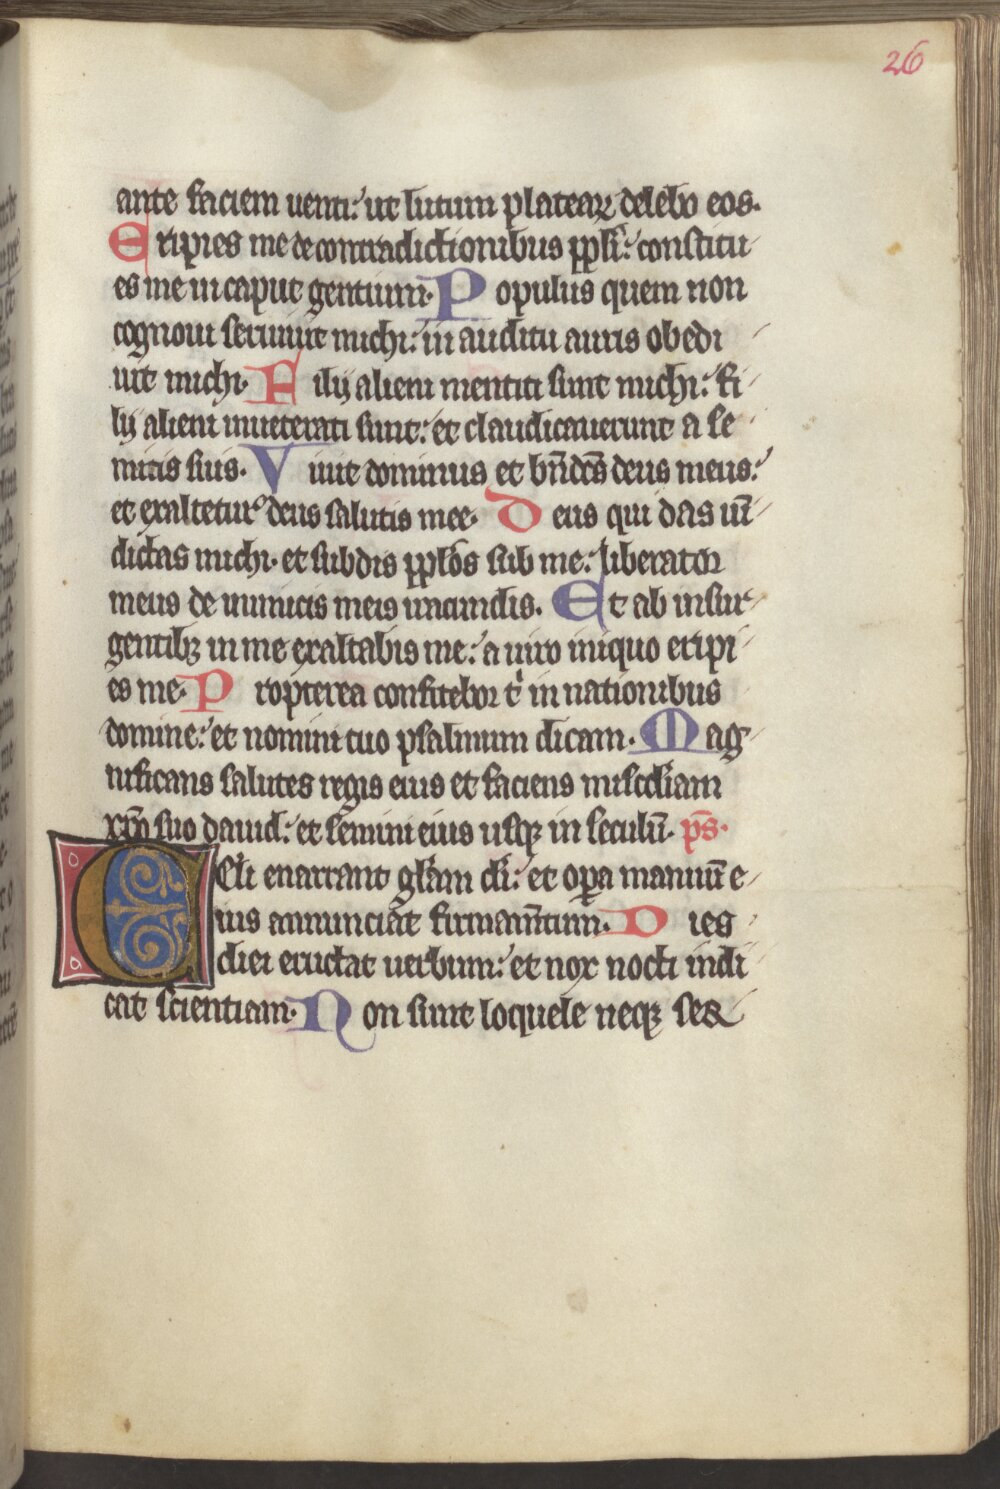 26
ante faciem venti: ut lutum plateaꝝ delebo eos.
Eripies me de contradictionibus ppl̄i: constitu
es me in caput gentium. Populus quem non
cognoui seruiuit michi: in auditu auris obedi
uit michi. Filij alieni mentiti sunt michi: fi
lij alieni inueterati sunt: et claudicauerunt a se
mitis suis. Viuit dominus et bn̄dc̄s deus meus:
et exaltetur deus salutis mee. Deus qui das uin̄
dictas michi. et subdis pp̄los sub me: liberator
meus de inimicis meis iracundis. Et ab insur
gentibꝫ in me exaltabis me: a uiro iniquo eripi
es me. Propterea confitebor tͥ in nationibus
domine: et nomini tuo psalmum dicam. Mag
nificans salutes regis eius et faciens misc̄diam
xp̄o suo dauid: et semini eius usqꝫ in seculū. ps̄.
Celi enarrant gl̄am di̅: et opa manuū e
ius annunciat firmam̄tum. Dies
diei eructat uerbum: et nox nocti indi
cat scientiam. Non sunt loquele neqꝫ ser